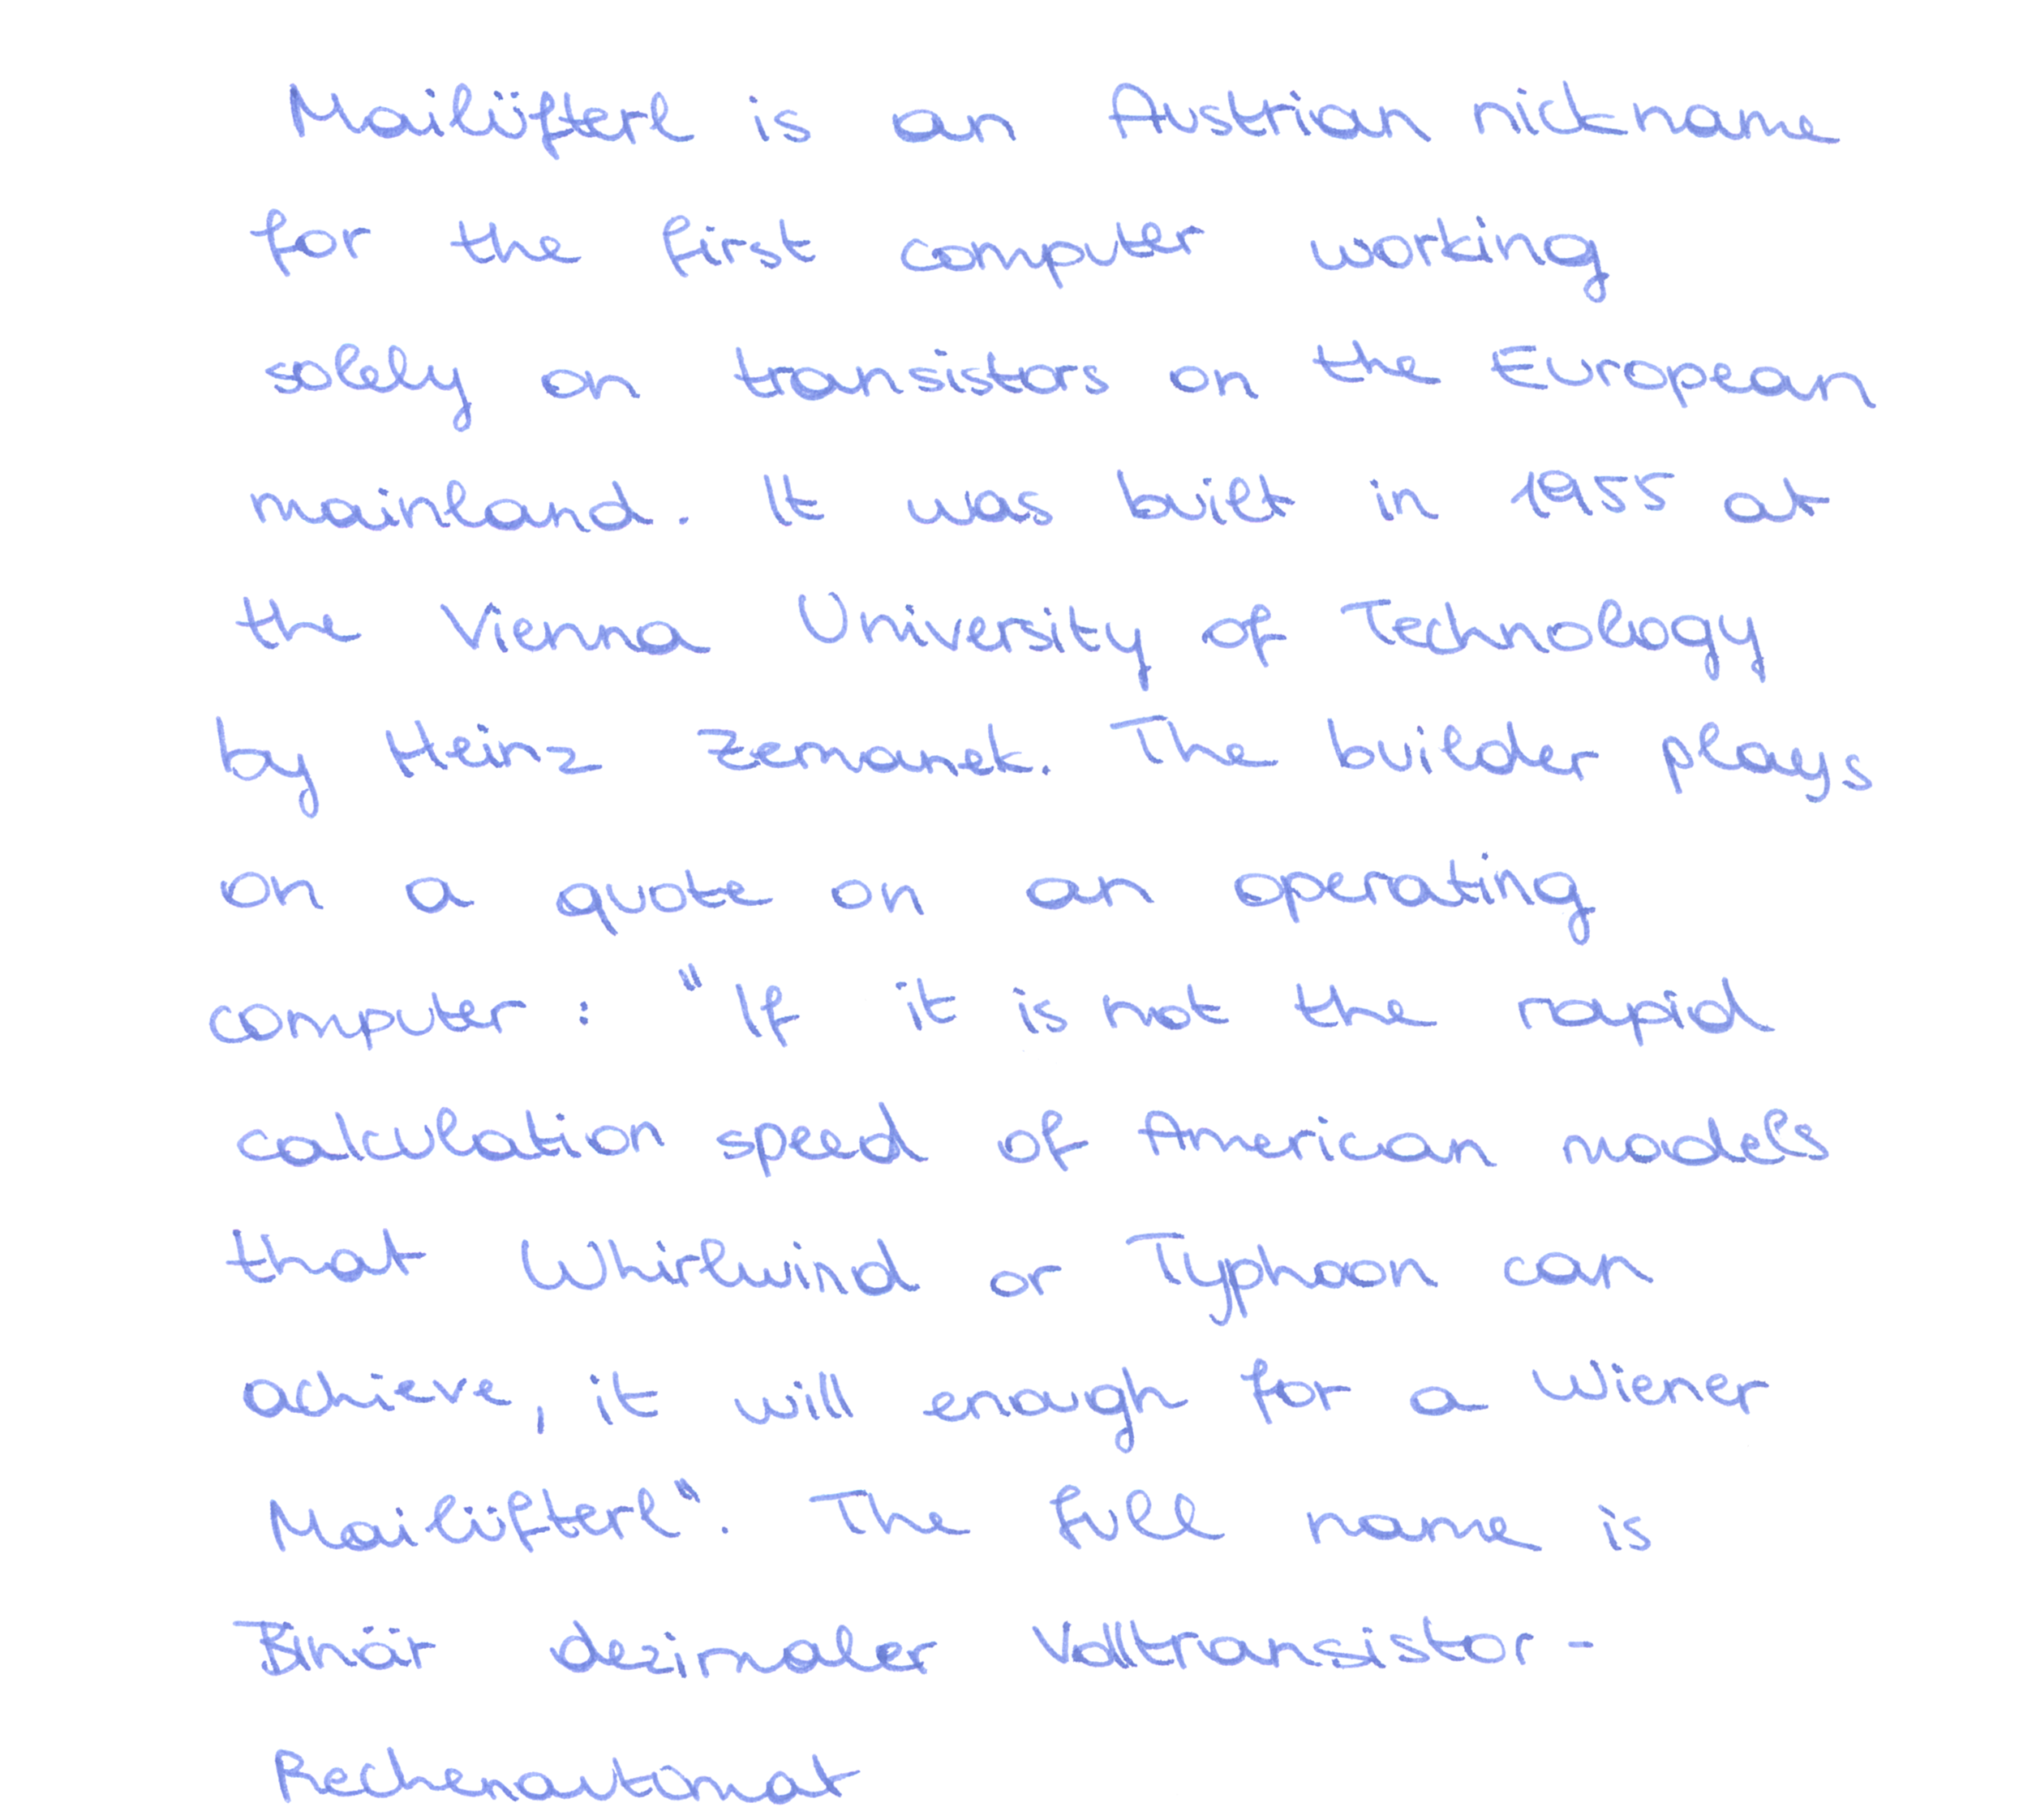 Mailüfterl is an Austrian nickname
for the first computer working
solely on transistors on the European
mainland. It was built in 1955 at
the Vienna University of Technology
by Heinz Zemanek. The builder plays
on a quote on an operating
computer: "If it is not the rapid
calculation speed of American models
that Whirlwind or Typhoon can
achieve, it will enough for a Wiener
Mailüfterl". The full name is
Binär dezimaler Volltransistor-
Rechenautomat